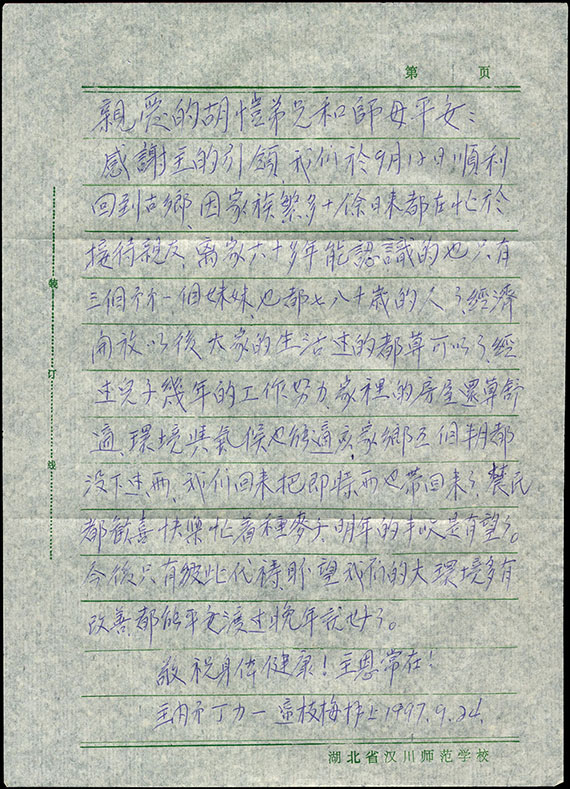 第 页
親愛的胡愷弟兄和師母平安:
感謝主的引領,我们於9月12日順利
回到古鄉,因家族繁多十餘日來都在忙於
接待親友,离家六十多年能認識的也只有
三個弟一個妹妹,也都七八十歲的人了,經濟
開放以後大家的生活过的都算可以了,經
过兒子幾年的工作努力,家裡的房屋還算舒
適,環境與氣候也能適应,家鄉五個月都
没下过雨,我们回來把即時雨也带回來了,農民
都歡喜快樂忙着種麥子明年的丰收是有望了。
今後只有彼此代禱盼望我们的大環境多有
改善都能平安渡过晚年就好了。
敬祝身体健康!主恩常在!
主内弟丁力一 枝梅 上1997.9.24.
装
订
线
湖北省汉川师范学校